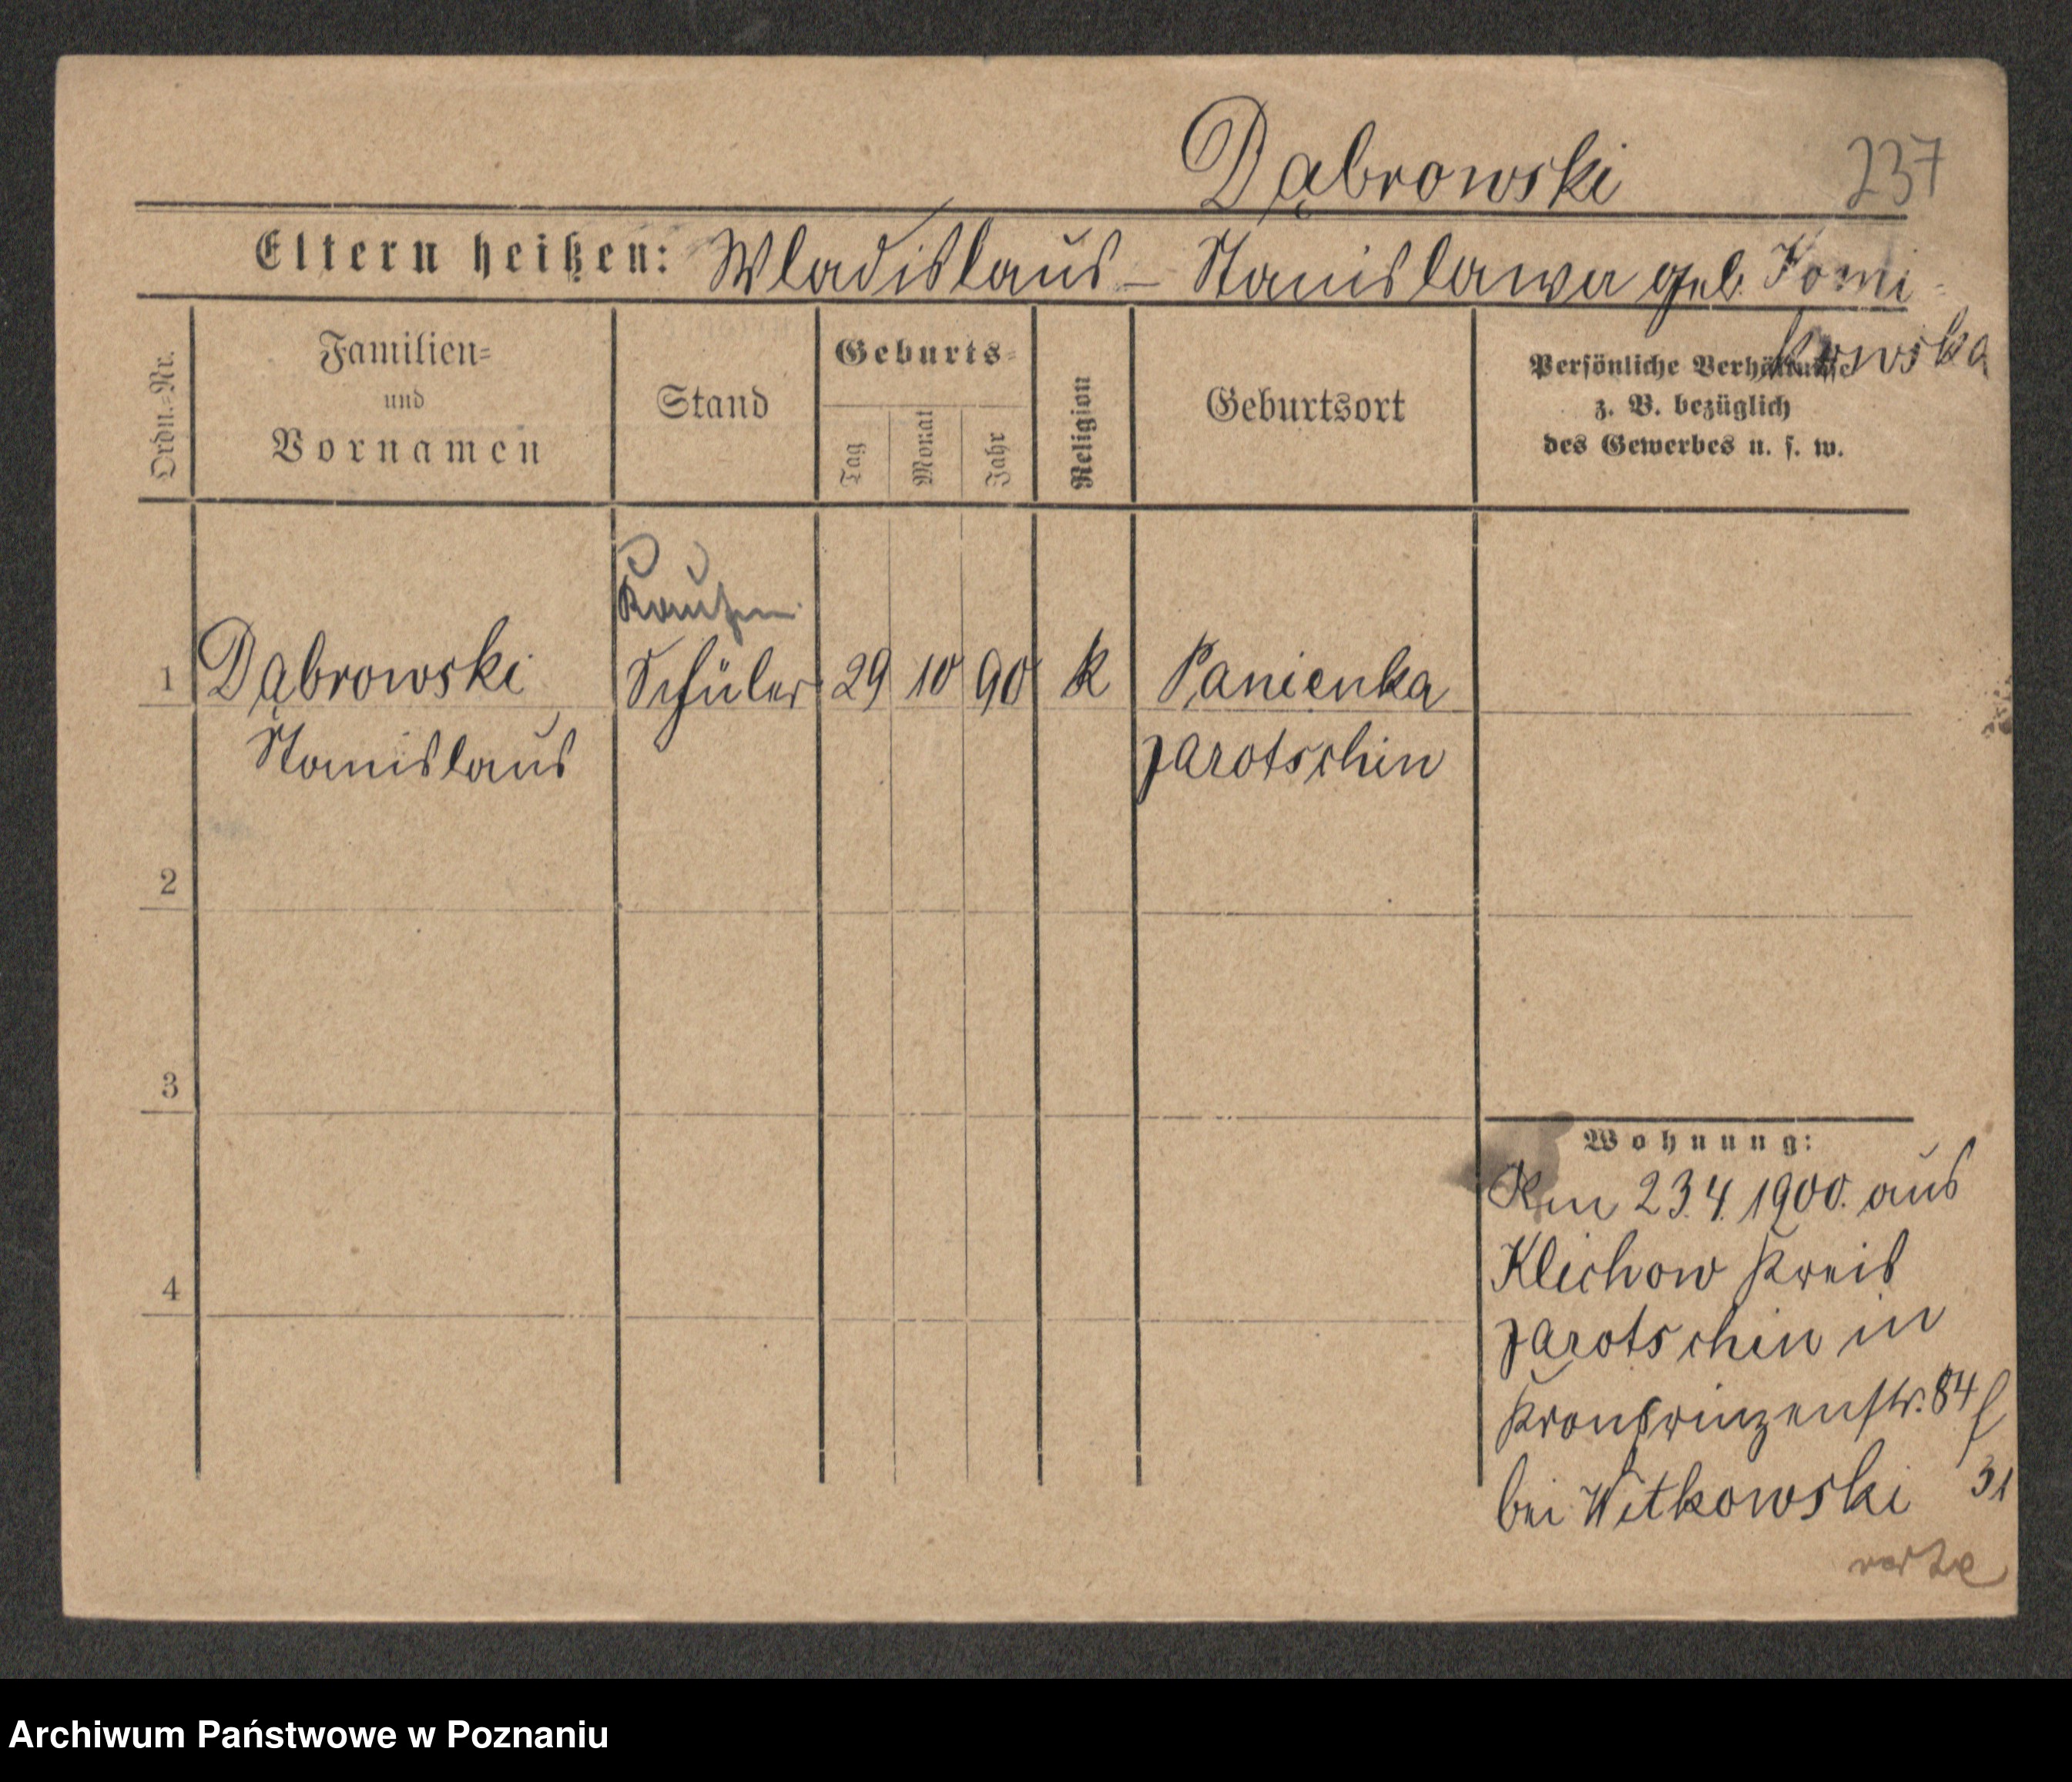 Dąbrowski 237
Eltern heißen: Wladislaus – Stanislawa geb. Fomi-
kowska
Ordn.=Nr.
Familien=
und
Vornamen
Stand
Geburts=
Tag
Monat
Jahr
Religion
Geburtsort
Persönliche Verhältnisse
z. B. bezüglich
des Gewerbes u. s. w.
Kaufm.
1 Dąbrowski Schüler 29 10 90 K Panienka
Stanislaus Jarotschin
2
3
4
Wohnung:
Am 23.4.1900. aus
Klichow Kreis
Jarotschin in
Kronprinzenstr. 84
bei Witkowski 31
Archiwum Państwowe w Poznaniu